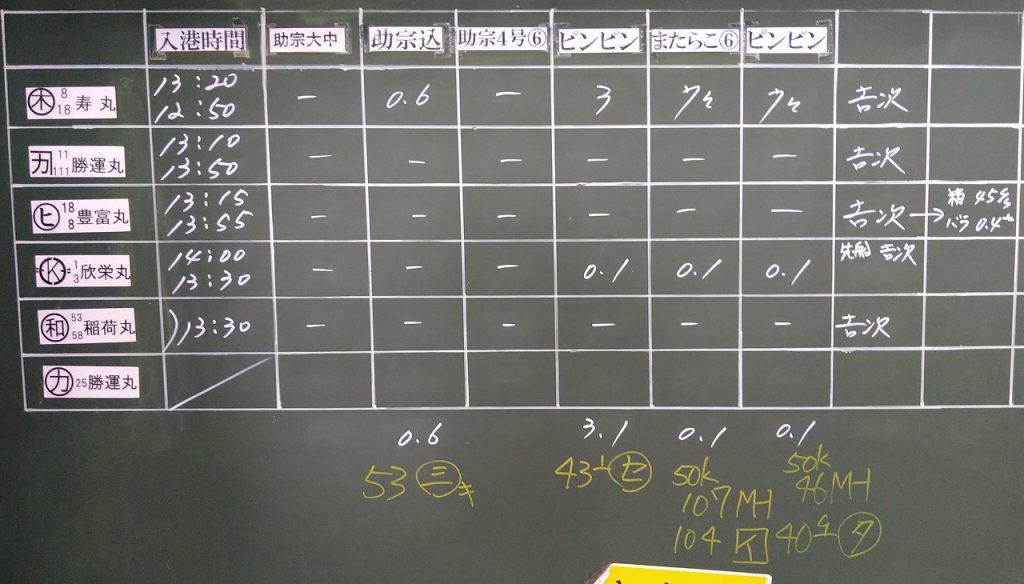 入港時間 助宗大中 助宗込 助宗4号⑥ ピンピン またらこ⑥ ピンピン
㊍ 8 18 寿丸 13:20 12:50 － 0.6 － 3 吉次
11 111 勝運丸 13:10 13:50 － － － － － － 吉次
ヒ 18 8 豊富丸 13:15 13:55 － － － － － － 吉次 → 箱 バラ 0.4
K 1 3 欣栄丸 14:00 13:30 － － － 0.1 0.1 0.1 吉次
和 53 58 稲荷丸 13:30 － － － － － － 吉次
カ 25 勝運丸
0.6 3.1 0.1 0.1
53 三キ 43 セ 50k 50k
107MH 46MH
104 イ 40 タ